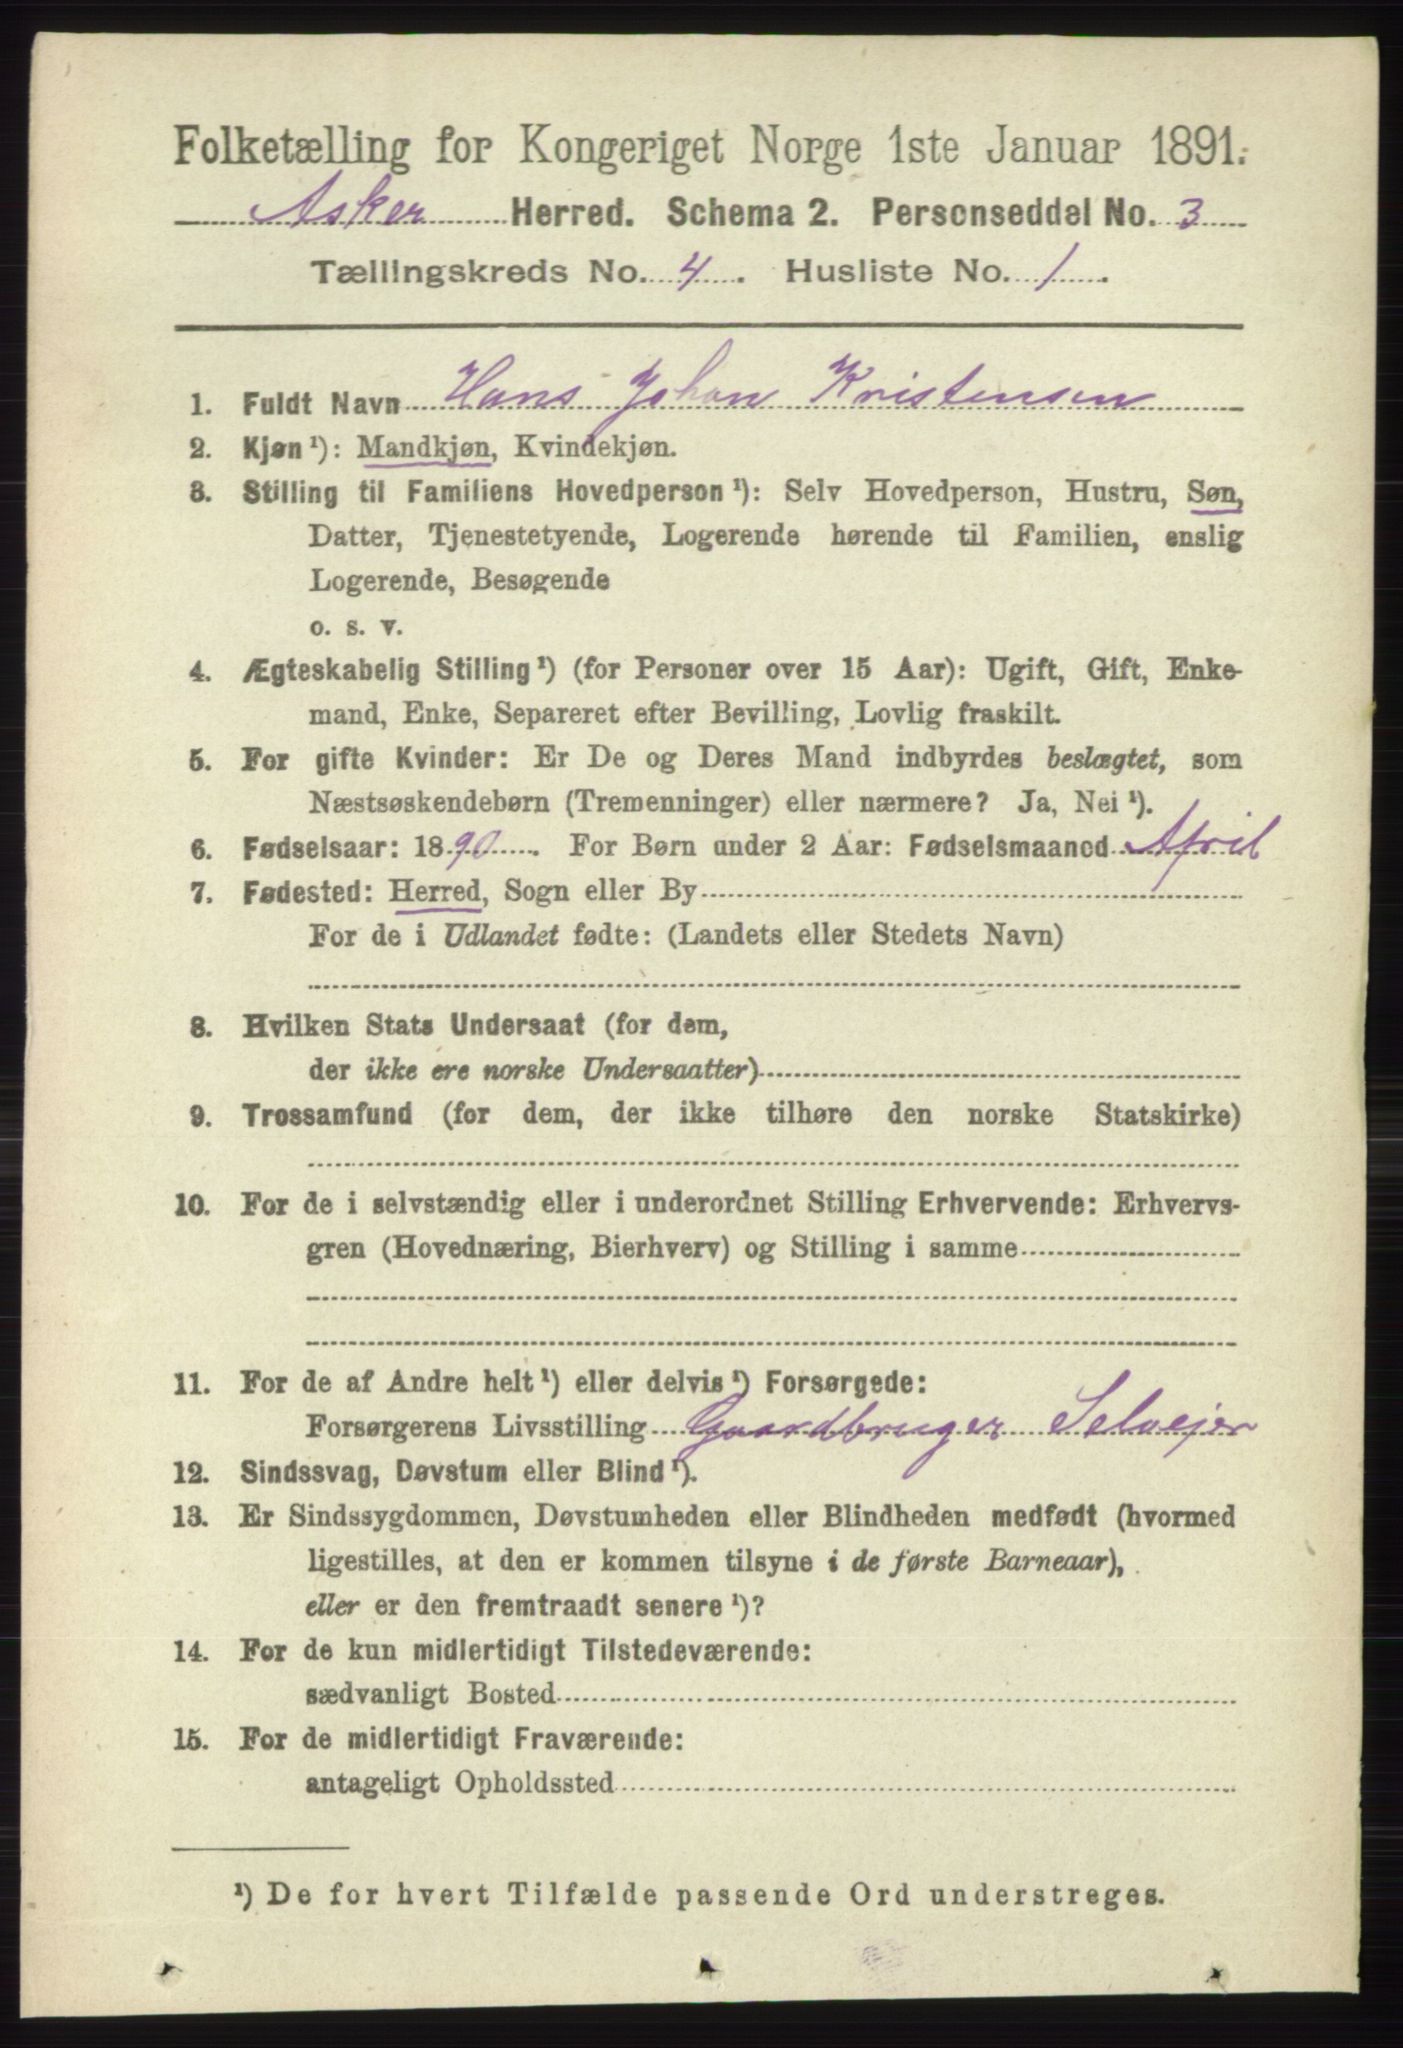 Folketælling for Kongeriget Norge 1ste Januar 1891.
Asker Herred. Schema 2. Personseddel No. 3
Tællingskreds No. 4. Husliste No. 1.
1. Fuldt Navn Hans Johan Kristensen
2. Kjøn¹): Mandkjøn, Kvindekjøn.
3. Stilling til Familiens Hovedperson¹): Selv Hovedperson, Hustru, Søn,
Datter, Tjenestetyende, Logerende hørende til Familien, enslig
Logerende, Besøgende
o. s. v.
4. Ægteskabelig Stilling¹) (for Personer over 15 Aar): Ugift, Gift, Enke-
mand, Enke, Separeret efter Bevilling, Lovlig fraskilt.
5. For gifte Kvinder: Er De og Deres Mand indbyrdes beslægtet, som
Næstsøskendebørn (Tremenninger) eller nærmere? Ja, Nei¹).
6. Fødselsaar: 1890. For Børn under 2 Aar: Fødselsmaaned April
7. Fødested: Herred, Sogn eller By
For de i Udlandet fødte: (Landets eller Stedets Navn)
8. Hvilken Stats Undersaat (for dem,
der ikke ere norske Undersaatter)
9. Trossamfund (for dem, der ikke tilhøre den norske Statskirke)
10. For de i selvstændig eller i underordnet Stilling Erhvervende: Erhvervs-
gren (Hovednæring, Bierhverv) og Stilling i samme
11. For de af Andre helt¹) eller delvis¹) Forsørgede:
Forsørgerens Livsstilling Gaardbruger Selvejer
12. Sindssvag, Døvstum eller Blind¹).
13. Er Sindssygdommen, Døvstumheden eller Blindheden medfødt (hvormed
ligestilles, at den er kommen tilsyne i de første Barneaar),
eller er den fremtraadt senere¹)?
14. For de kun midlertidigt Tilstedeværende:
sædvanligt Bosted
15. For de midlertidigt Fraværende:
antageligt Opholdssted
¹) De for hvert Tilfælde passende Ord understreges.